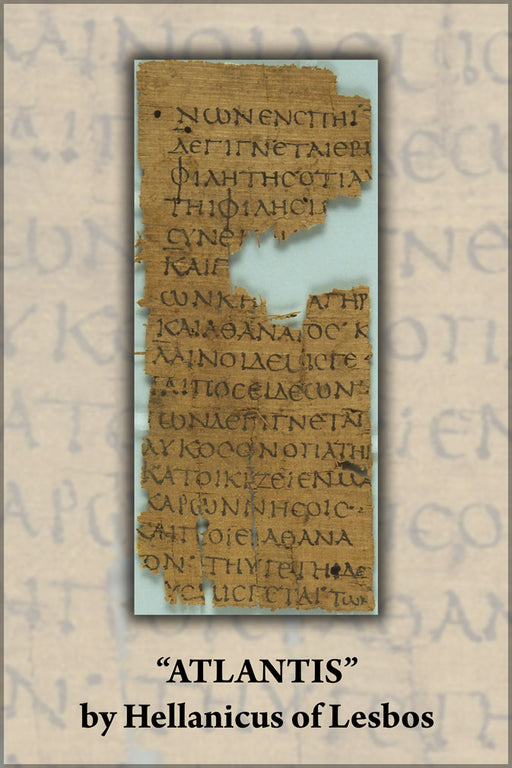 ΝΩΝΕΝϹΠΗΙ
ΔΕΓΙΓΝΕΤΑΙΕΡΜ
ΦΙΛΗΤΗϹΟΤΙΑΥ
ΤΗΙΦΙΛΗϹΙ
ϹΥΝΕ
ΚΑΙΓ
ΩΝΚΗ ΑΓΗΡ
ΚΑΙΑΘΑΝΑΤΟϹ Κ
ΛΑΙΝΟΙΔΕΜΙϹΓΕ
ΤΑΙΠΟϹΕΙΔΕΩΝ
ΤΩΝΔΕΓΙΓΝΕΤΑΙ
ΛΥΚΟϹΟΝΟΠΑΤΗΡ
ΚΑΤΟΙΚΙΖΕΙΕΝΜΑ
ΚΑΡΩΝΝΗϹΟΙϹ
ΚΑΙΠΟΙΕΙΑΘΑΝΑ
ΤΟΝ
ΜΙϹΓΕΤΑΙ ΤΩΝ
“ATLANTIS”
by Hellanicus of Lesbos